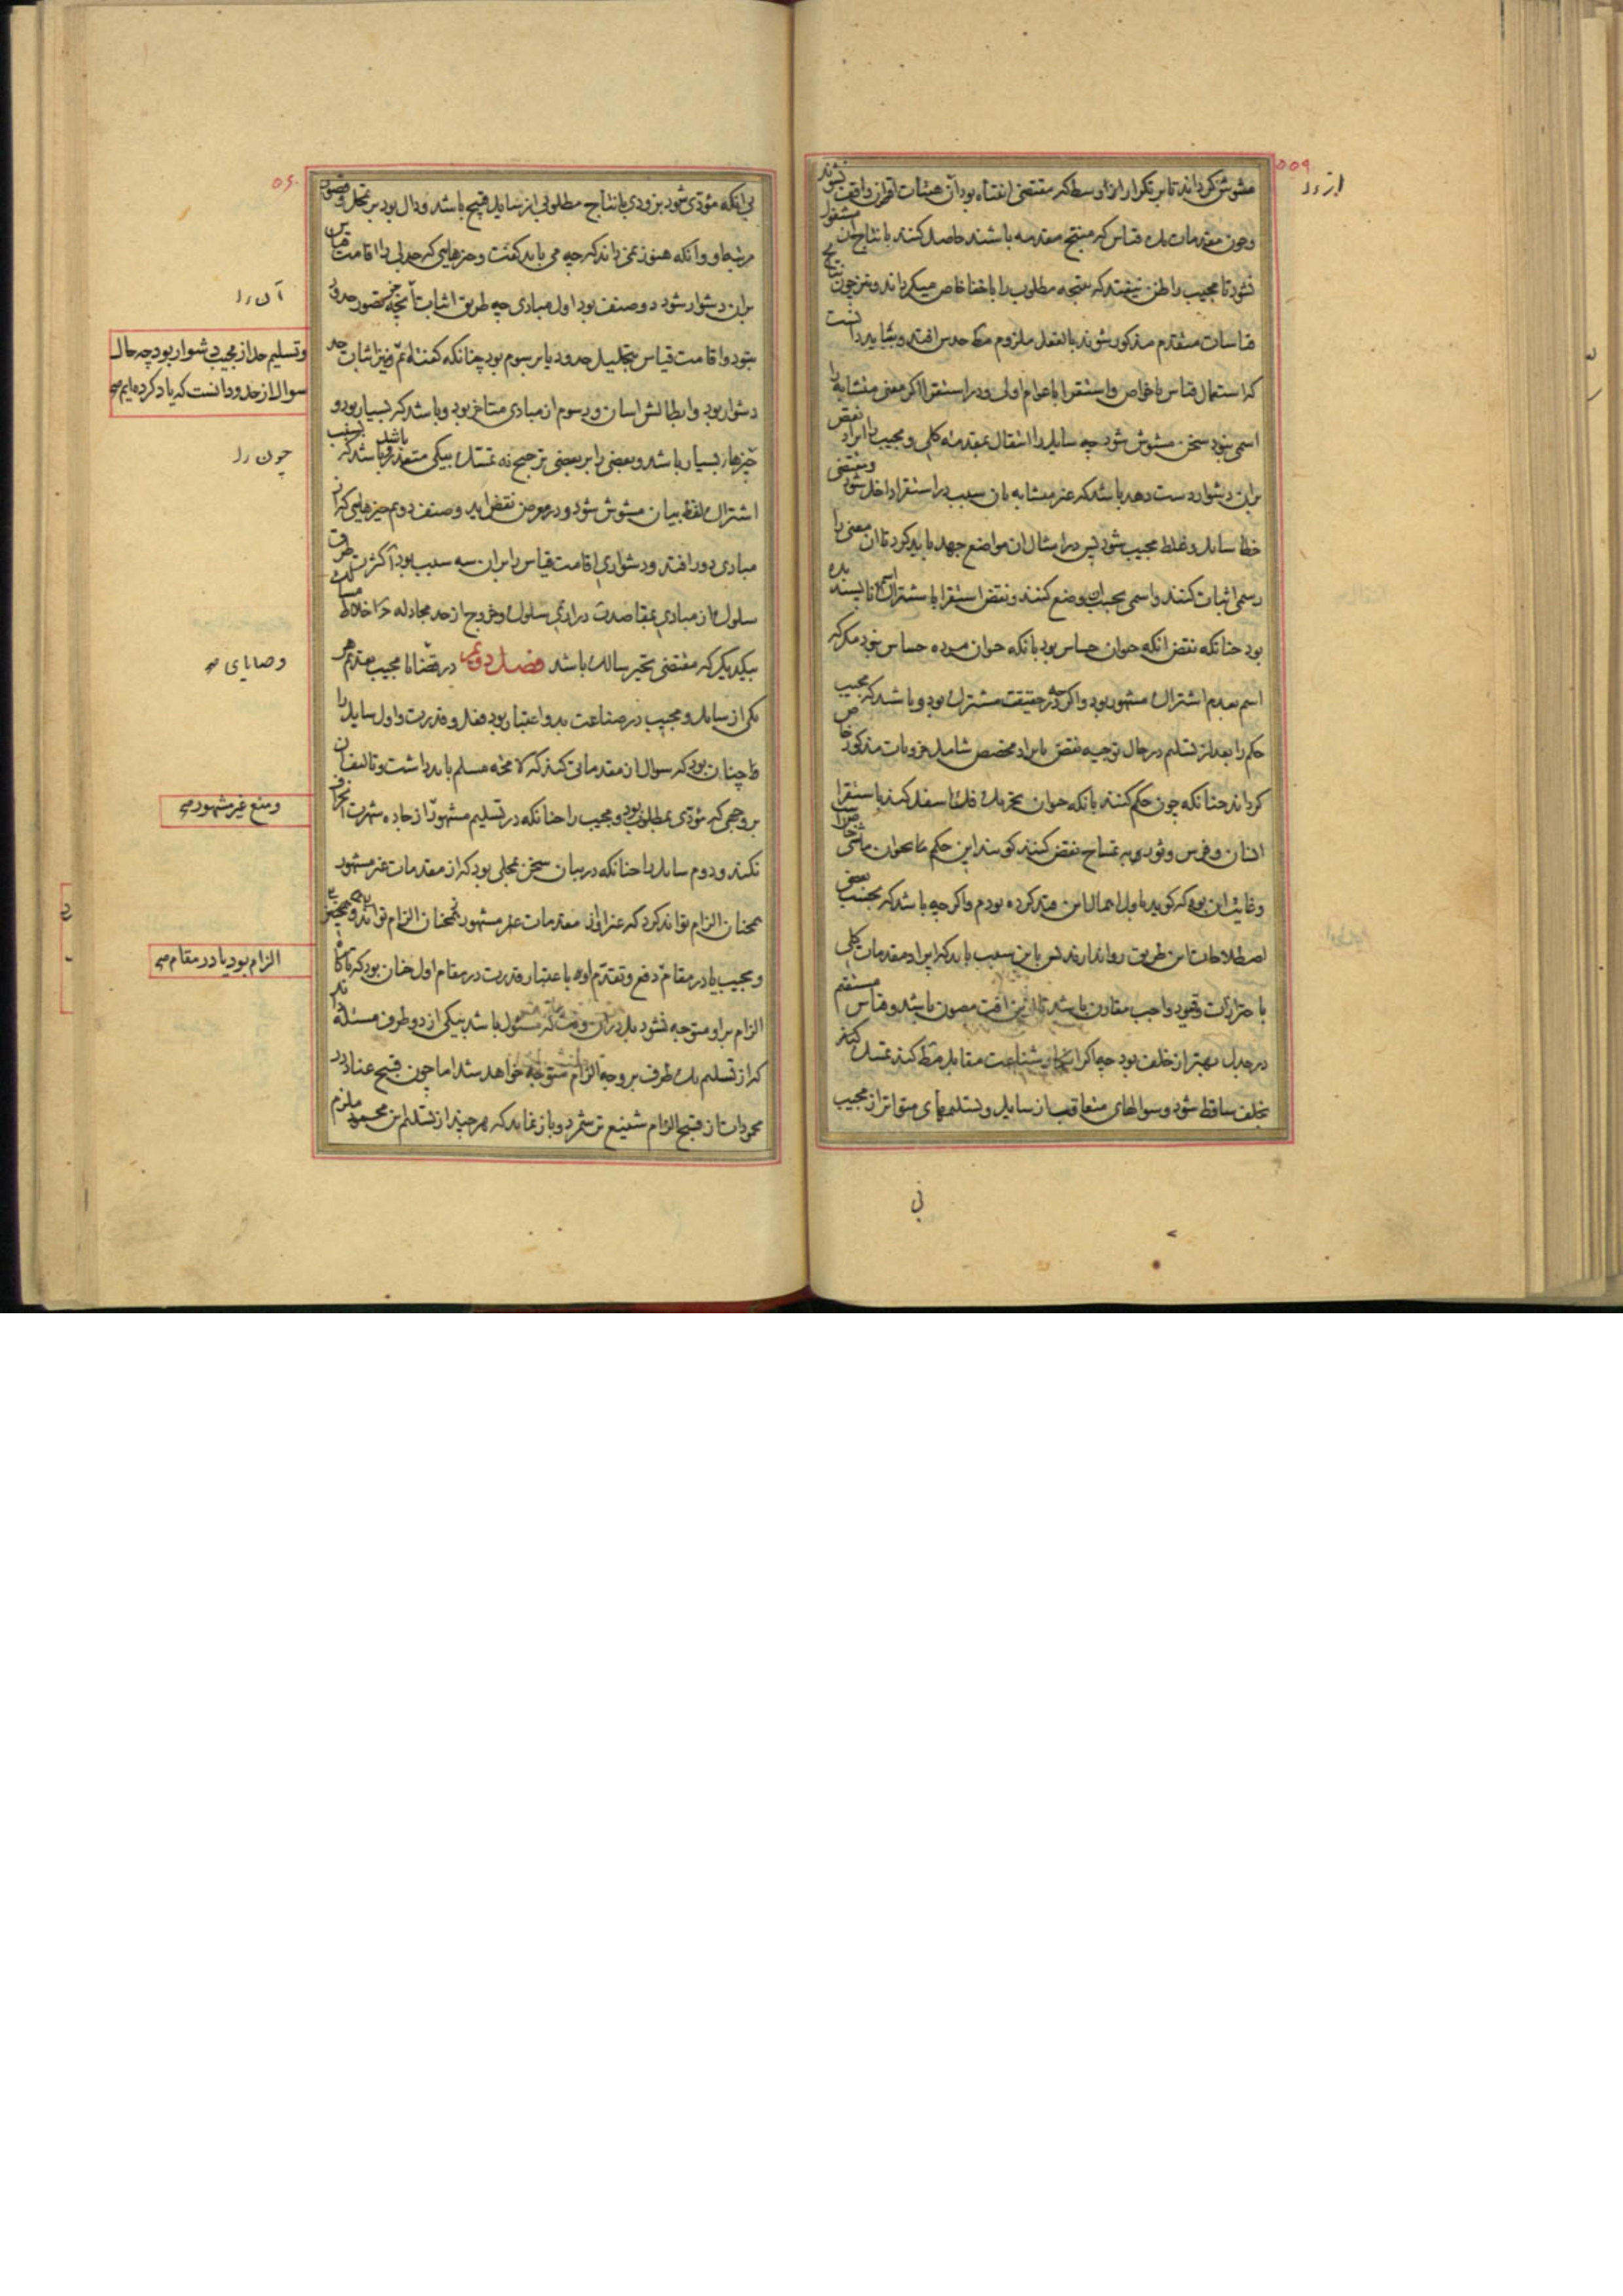 مشوش گرداند تا بر تکرار اوسط که مقتضی انتباه بود از هیئات اقتران واقف نشوند
و چون مقدمات یک قیاس که منتج مقدمه باشند حاصل کنند بانتاج آن مشغول
نشود تا مجیب را ظن نیفتد که نتیجه مطلوب را با خفا خاص میگرداند و نیز چون نتایج
قیاسات متقدم مذکور شوند بالفعل ملزوم حدس افتد و بباید دانست
که استعمال قیاس با خواص و استقرا با عوام اولی بود و در استقرا اگر معنی متشابه را
اسمی نبود سخن مشوش شود چه سایل را انتقال بمقدمه کلی و مجیب را ایراد نقض
بران دشوار دست دهد باشد که غیر متشابه بان سبب در استقرا داخل شود و مقتضی
خطا سایل و غلط مجیب شود پس در امثال ان مواضع جهد باید کرد تا ان معنی را
رسمی اثبات کنند و اسمی بحسب ان وضع کنند و نقض استقرا باشتراک اسم ناپسندیده
بود چنانکه نقض انکه حیوان حساس بود بانکه حیوان مرده حساس نبود مگر که
اسم بعدم اشتراک مشهور بود و اگرچه در حقیقت مشترک بود و باشد که مجیب
حکم را بعد از تسلیم در حال توجیه نقض بایراد مخصص شامل جزویات مذکور خاص
گرداند چنانکه چون حکم کنند بانکه حیوان تحریک فک اسفل کند باستقرا
انسان و فرس و ثور و به تمساح نقض کنند گویند این حکم ما بحیوان ماشی خاص است
و غایت این بود که گوید باول اهمال این قید کرده بودم و اگرچه باشد که بحسب بعضی
اصطلاحات این طریق روا ندارند پس باین سبب باید که ایراد مقدمات کلی
باحترازات و قیود واجب مقارن باشد تا ازین افت مصون باشد و قیاس مستقیم
در جدل بهتر از خلف بود چه اگر انکار شناعت مقابل کند تمسک
بخلف ساقط شود و سوالهای متعاقب از سایل و تسلیمهای متواتر از مجیب
نی
از رد
۵۵۹
۵۶۰
بی انکه مؤدی شود بزودی بانتاج مطلوبی از سایل قبیح باشد و دال بود بر تحیل و قصور
مرتبه او و آنکه هنوز نمی داند که چه می باید گفت و چیزهایی که جدلی را اقامت قیاس
بران دشوار شود دو صنف بود اول مبادی چه طریق اثبات آنچه جز بتصور حدود
نبود و اقامت قیاس بتحلیل حدود یا برسوم بود چنانکه گفته ایم و نیز اثبات حد
دشوار بود و ابطالش اسان و رسوم از مبادی متاخر بود و باشد که بسیار بود و
چیزها بسیار باشد و بعضی را بر بعضی ترجیح نه تمسک بیکی متعذر باشد و باشد که بسبب
اشتراک لفظ بیان مشوش شود و در معرض نقض اید و صنف دویم چیزهایی که از
مبادی دور افتد و دشواری اقامت قیاس بران سه سبب بود آ کثرت طرق
سلوک از مبادی بمقاصد ب درازی سلوک و خروج از حد مجادله ج اختلاط مسالک
بیکدیگر که مقتضی تحیر سالک باشد فصل دویم در وصایا مجیب تقدیم هر
یکی از سایل و مجیب در صناعت بدو اعتبار بود فعل و قدرت و اول سایل را
چنان بود که سوال از مقدماتی کند که لا محاله مسلم باید داشت و تالیف ان
بر وجهی که مؤدی بمطلوب بود و مجیب را چنانکه در تسلیم مشهور از جاده شهرت انحراف
نکند و دوم سایل را چنانکه در بیان سخن بحالی بود که از مقدمات غیر مشهور
همچنان الزام تواند کرد که غیر او از مقدمات غیر مشهور همچنان الزام تواند
و مجیب یا در مقام دفع و تقدم او باعتبار قدرت در مقام اول چنان بود که ناگاه
الزام بر او متوجه نشود بل دران وقت که مسئول باشد بیکی از دو طرف مسئله داند
که از تسلیم یک طرف بر و چه الزام متوجه خواهد شد اما چون قبیح عناد در
محمودات از قبح الزام شنیع تر شمرد و باز نماید که هر چند از تسلیم این محمود ملزم
آن رد
و تسلیم حد از مجیب دشوار بود چه حال
سوال از حدود دانست که یاد کرده ایم صح
چون رد
وصایای صح
و منع غیر مشهور صح
الزام بود یا در مقام صح